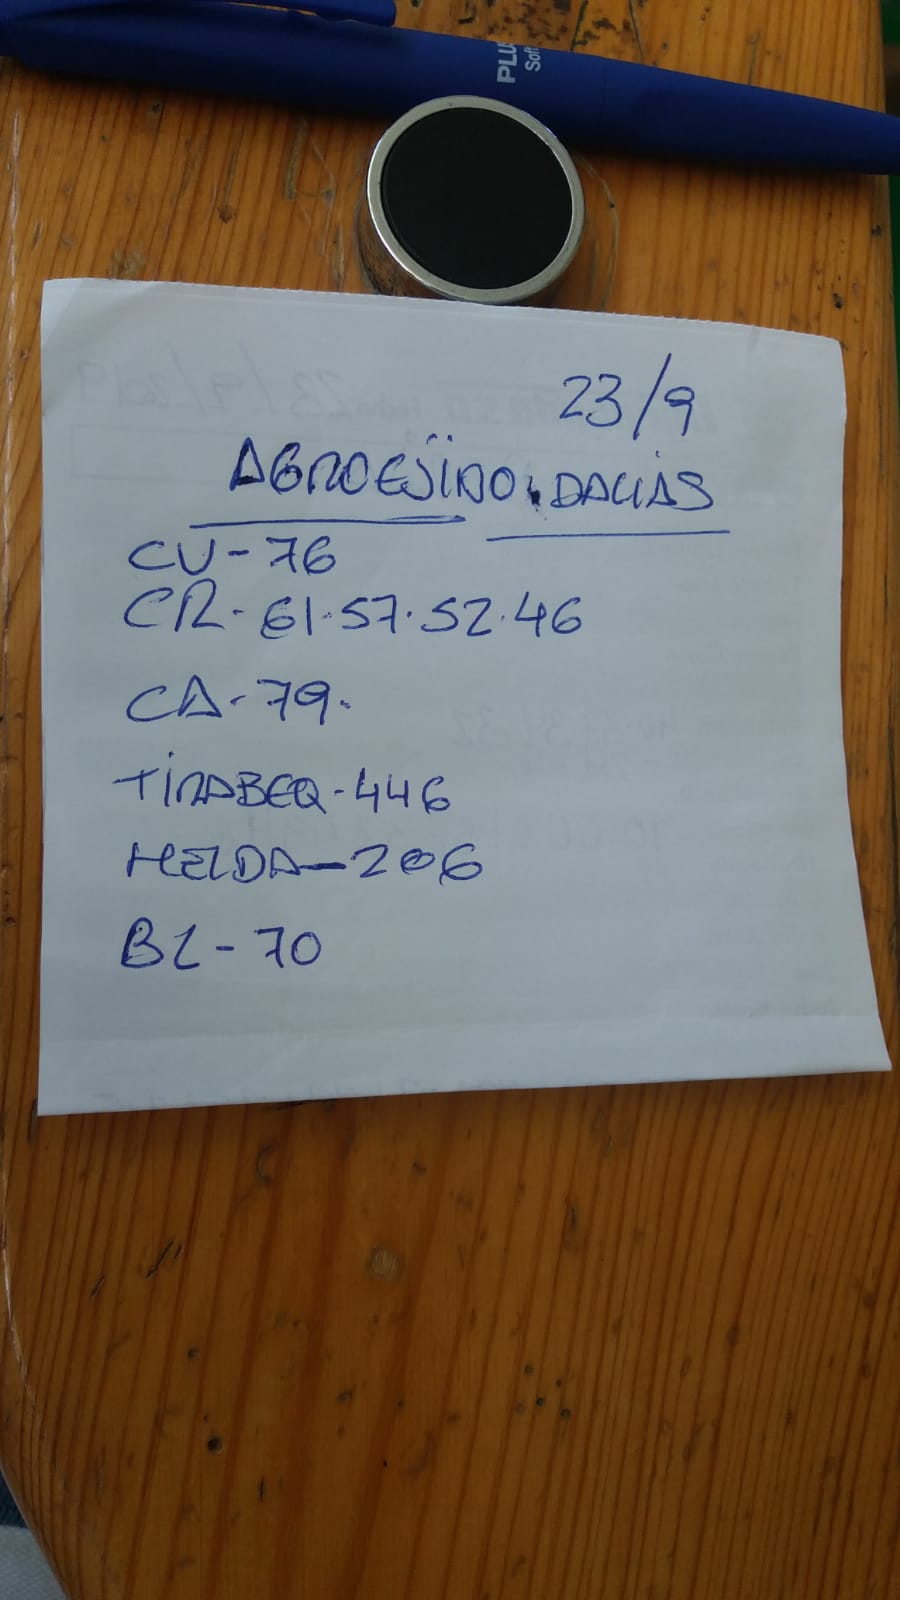 PLUS
Soft
23/9
AGROEJIDO. DALIAS
CU-76
CR-61.57.52.46
CA-79.
TIRABEQ-446
HELDA-206
BL-70